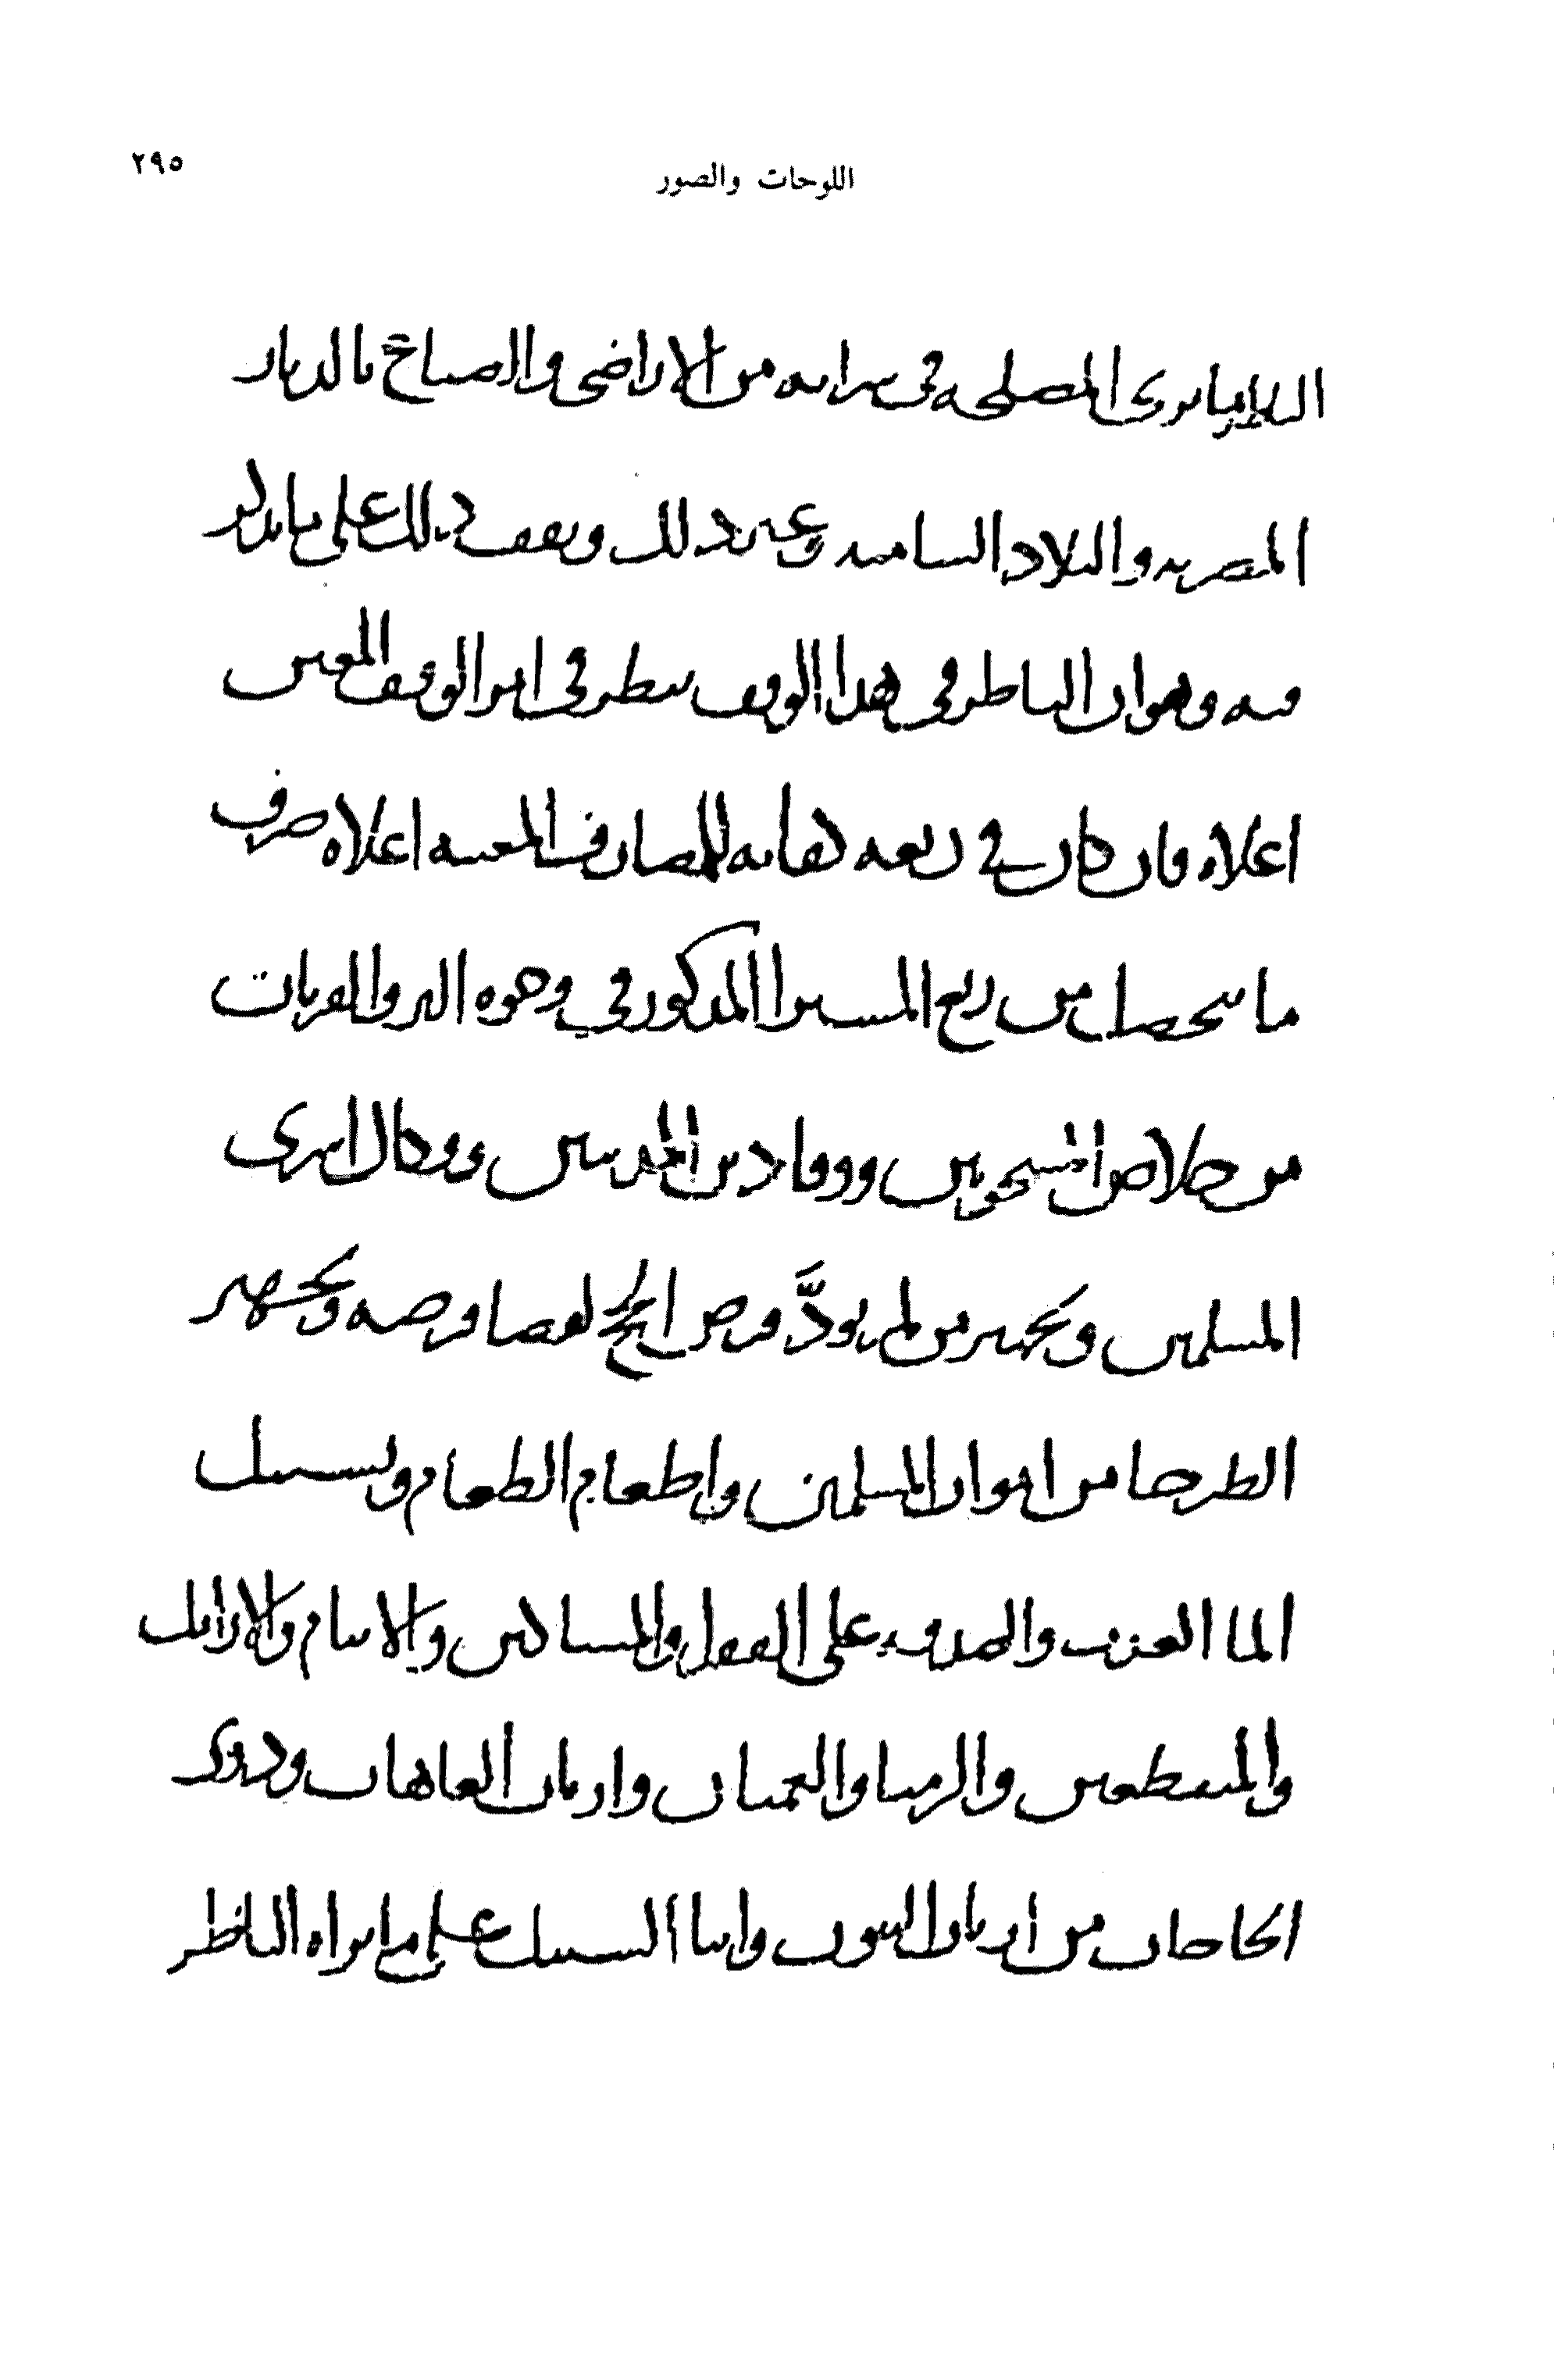 ٢٩٥
اللوحات والصور
الناظر ما يرى المصلحه في شرايه من الاراضي والضياع بالديار
المصريه والبلاد الشاميه وغير ذلك ويقف ذلك على ما يذكر
فيه وهو ان الناظر في هذا الوقف ينظر في امر الوقف المعين
اعلاه فان كان في ريعه كفايه للمصارف المعينه اعلاه صرف
ما يتحصل من ريع المشترا المذكور في وجوه البر والقربات
من خلاص المسجونين ووفا دين المدينين وفكاك اسرى
المسلمين وتجهيز من لم يودّ فرض الحج لقضا فرضه وتجهيز
الطرحا من اموات المسلمين واطعام الطعام وتسبيل
الما العذب والصدقه على الفقرا والمساكين والايتام والارامل
والمنقطعين والزمنا والعميان وارباب العاهات وذوي
الحاجات من ارباب البيوت وابنا السبيل على ما يراه الناظر